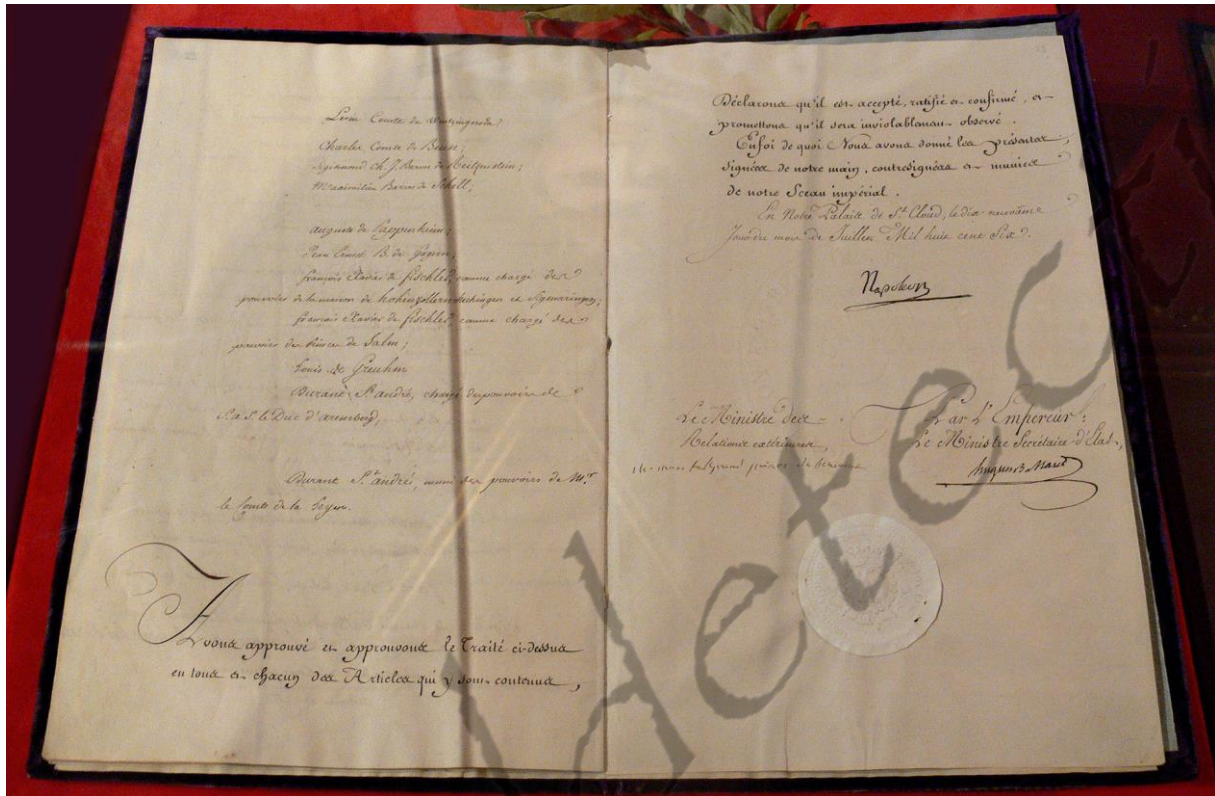 Levin Comte de Wintzingerode;
Charles Comte de Beust;
Sigismond Ch. J. Baron de Reitzenstein;
Maximilien Baron de Schell;
Auguste de Pappenheim;
Jean Ernest B. de Gagern,
françois Xavier de fischler, comme chargé des
pouvoirs de la maison de hohenzollern hechingen et Sigmaringen;
françois Xavier de fischler, comme chargé des
pouvoirs des Princes de Salm;
Louis de Greuhm
Durant St. andré, chargé de pouvoirs de
S. a. S. le Duc d'aremberg,
Durant St. andré, muni des pouvoirs de Mr.
le Comte de la Leyen.
Avons approuvé et approuvons le Traité ci-dessus
en tous et chacun des Articles qui y sont contenus,
Déclarons qu'il est accepté, ratifié et confirmé, et
promettons qu'il sera inviolablement observé.
Enfoi de quoi Nous avons donné les présentes,
signées de notre main, contresignées et munies
de notre Sceau impérial.
En Notre Palais de St. Cloud, le dix neuvième
Jour du mois de Juillet Mil huit cent Six.
Napoleon
Le Ministre des
Relations extérieures,
Par l'Empereur:
Le Ministre Secrétaire d'État,
hugues B. Maret